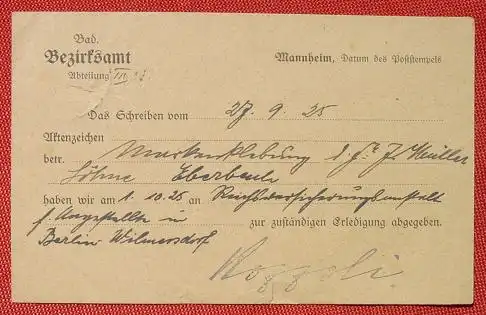 Bad.
Bezirksamt
Mannheim, Datum des Poststempels
Abteilung III
Das Schreiben vom 27. 9. 25
Aktenzeichen
betr. Markenklebung d. Fa. J. Müller
Söhne Eberbach
haben wir am 1. 10. 25 an Reichsversicherungsanstalt
f. Angestellte in zur zuständigen Erledigung abgegeben.
Berlin Wilmersdorf